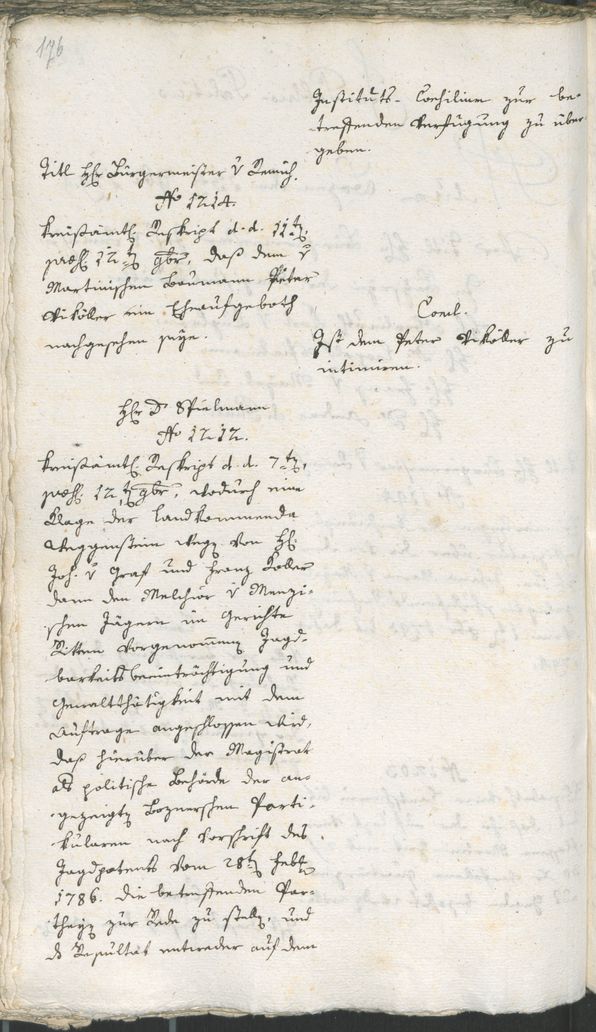 176
Instituts-Cassiliam zur be-
treffenden Verfügung zu über
geben.
Titl Hr Bürgermeister v Remich.
No 1214.
Kreisämtl. Reskript d. d. 11ten,
praes. 12ten 9bris, daß dem v
Martinischen Baumann Peter
Vikoller ein Eheaufgeboth
nachgesehen seye.
Concl.
Ist dem Peter Vikoller zu
intimiren.
Hr Dr Stielmann
No 1212.
Kreisämtl. Reskript d. d. 7ten,
praes. 12ten 9bris, wodurch eine
Klage der Landkommende
Weggenstein wegen von H.
Joh. v Graf und Franz Koller
dann den Melchior v Menzi-
schen Jägern im Gerichte
Ritten vorgenommenen Jagd-
barkeitsbeeinträchtigung und
Gewaltthätigkeit mit dem
Auftrage angeschlossen wird,
daß hierüber der Magistrat
als politische Behörde der an-
gezeigten Boznerschen Parti-
kularen nach Vorschrift des
Jagdpatents vom 28ten Febr
1786. die betreffenden Par-
theyen zur Rede zu stellen, und
das Resultat entweder auf dem